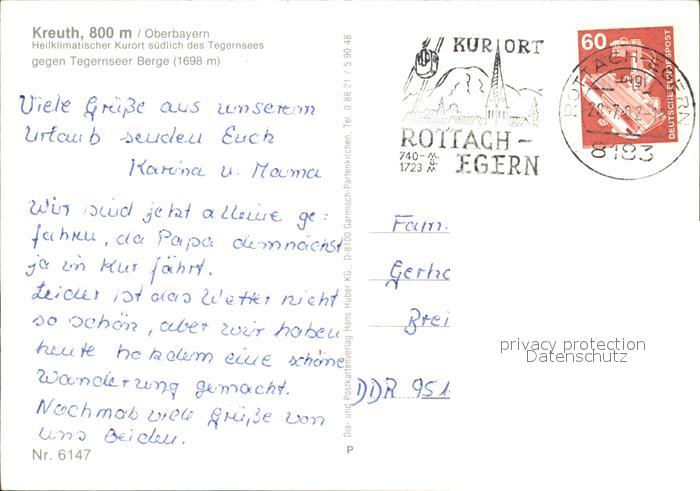 Kreuth, 800 m / Oberbayern
Heilklimatischer Kurort südlich des Tegernsees
gegen Tegernseer Berge (1698 m)
Viele Grüße aus unserem
Urlaub senden Euch
Karina u. Mama
Wir sind jetzt alleine ge=
fahren, da Papa demnächst
ja in Kur fährt.
Leider ist das Wetter nicht
so schön, aber wir haben
heute trotzdem eine schöne
Wanderung gemacht.
Nochmals viele Grüße von
uns beiden.
Nr. 6147
Dia- und Postkartenverlag Hans Huber KG., D-8100 Garmisch-Partenkirchen, Tel. 0 88 21 / 5 90 48
P
KURORT
ROTTACH-
740-M
1723 M
EGERN
60
DEUTSCHE BUNDESPOST
ROTTACH-EGERN
8183
Fam.
Gerha
Brei
DDR 951
privacy protection
Datenschutz